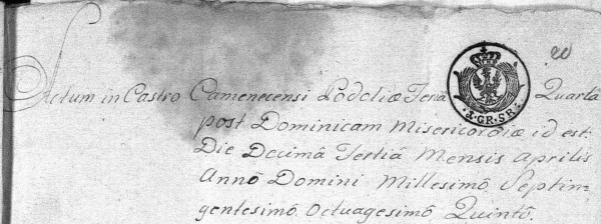 20
Actum in Castro Camenecensi Podoliæ Feria Quartâ
post Dominicam Misericordiæ id est:
Die Decimâ Tertiâ Mensis Aprilis
Annô Domini Millesimô Septin=
gentesimô Octuagesimô Quintô.
1.GR.SR.